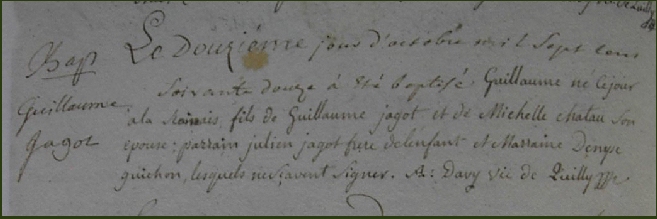 Bapt
Guillaume
Jagot
Le Douziéme jour d'octobre mil sept cens
soixante douze á été baptisé Guillaume né le jour
a la fils de Guillaume jagot et de Michelle chatau son
epouse : parrain julien jagot frere de lenfant et Marraine Denyse
guichon, lesquels ne sçavent signer. Davy vic de